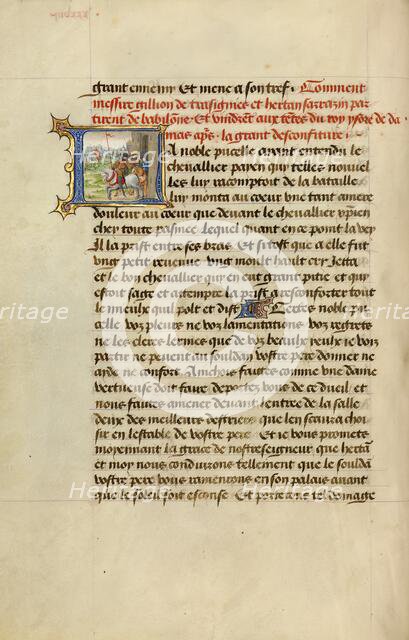 grant ennemy Et mene a son tref. Comment
messire gillion de trasignies et hertan sarrazin par
tirent de babilone. Et vindrent aux tentes du roy ysore de da
mas apres la grant desconfiture.
La noble pucelle ayant entendu le
chevallier payen qui telles nouvel
les luy racomptoit de la bataille
luy monta au coeur une tant amere
douleur au coeur que devant le chevallier xpien
chey toute pasmee Lequel quant en ce point la vey
Il la prist entre ses bras Et si tost que a elle fut
ung petit revenue ung moult hault cry Jetta
et le bon chevallier quy en eut grant pitie et quy
estoit sage et attempre la prist a resconforter tout
le mieulx quil polt et dist Certes noble pu
celle voz pleurs ne voz lamentations voz regretz
ne les cleres lermes que de voz beaulx yeulx je voy
partir ne peuent au souldan vostre pere donner ne
ayde ne confort. Ainchois faittes comme une dame
vertueuse doit faire deportez vous de ce dueil et
nous faittes amener devant lentree de la salle
deux des meilleurs destriers que len scaura choi
sir en lestable de vostre pere Et je vous promets
moyennant la grace de nostreseigneur que hertan
et moy nous conduirons tellement que le soulda
vostre pere vous ramenrons en son palais avant
que le soleil soit esconse Et porterons tel domage
Heritage
Heritage
Heritage
Heritage
Heritage
Heritage